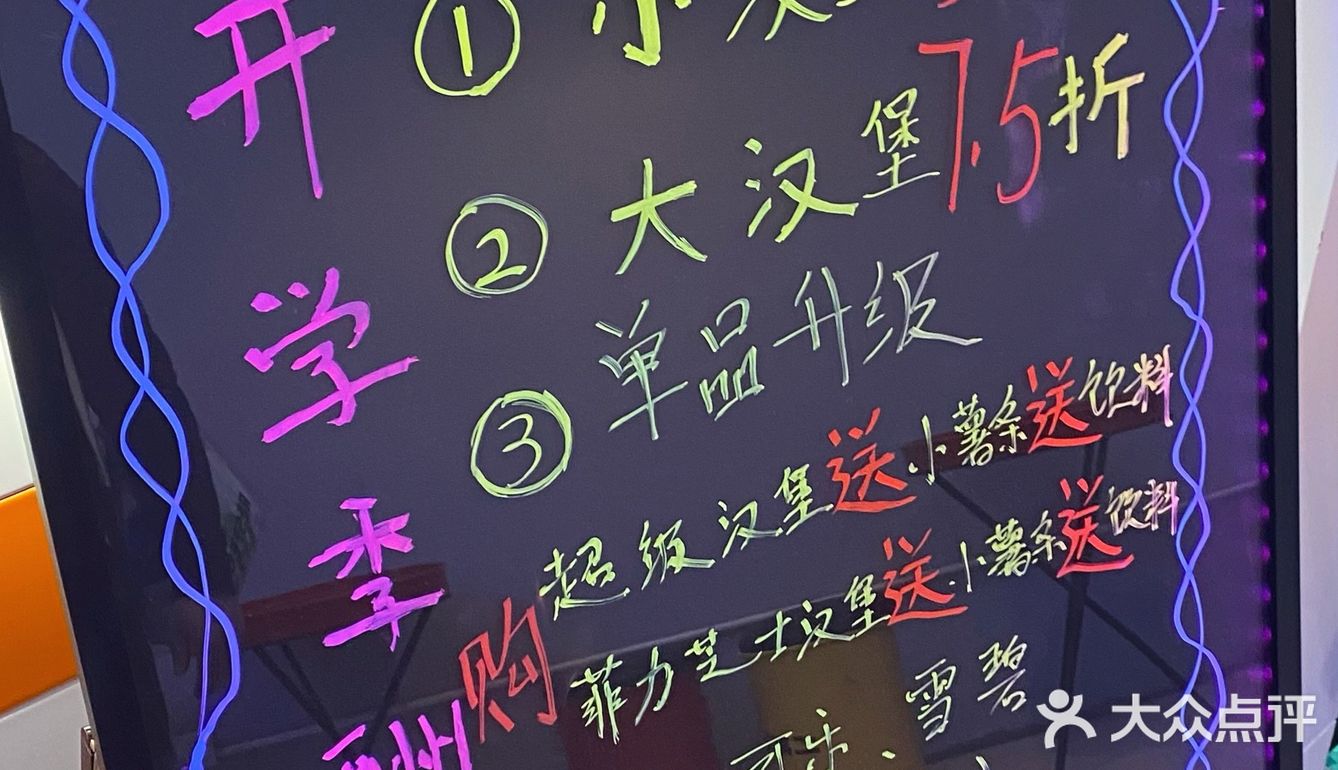 开学季
① 小汉
② 大汉堡7.5折
③ 单品升级
购
超级汉堡送小薯条送饮料
菲力芝士汉堡送小薯条送饮料
可乐、雪碧
大众点评